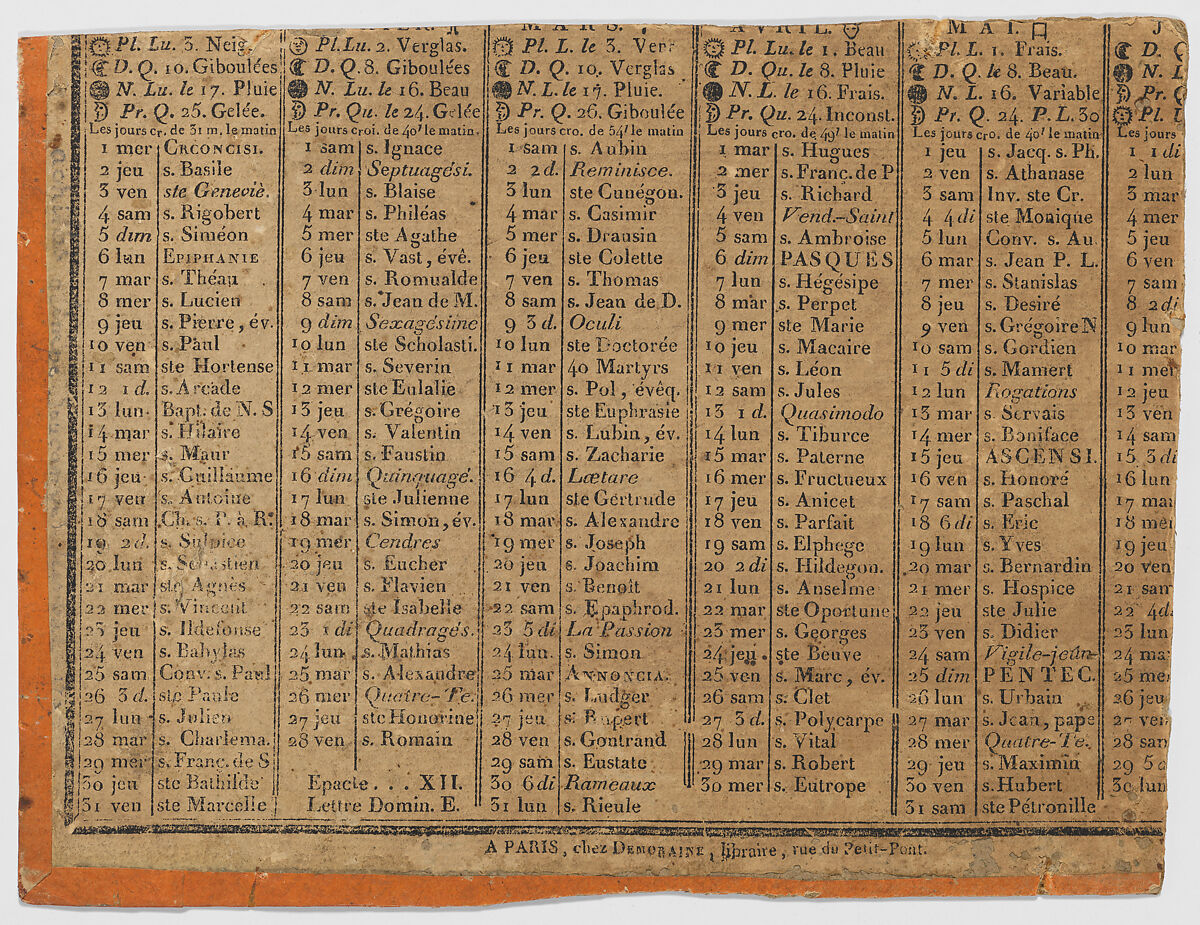 Pl. Lu. 3. Neig.
D. Q. 10. Giboulées
N. Lu. le 17. Pluie
Pr. Q. 25. Gelée.
Les jours cr. de 31 m. le matin
1 mer CRCONCISI.
2 jeu s. Basile
3 ven ste Geneviè.
4 sam s. Rigobert
5 dim s. Siméon
6 lun EPIPHANIE
7 mar s. Théau
8 mer s. Lucien
9 jeu s. Pierre, év.
10 ven s. Paul
11 sam ste Hortense
12 1 d. s. Arcade
13 lun Bapt. de N. S
14 mar s. Hilaire
15 mer s. Maur
16 jeu s. Guillaume
17 ven s. Antoine
18 sam Ch. s. P. à R.
19 2 d. s. Sulpice
20 lun s. Sébastien
21 mar ste Agnès
22 mer s. Vincent
23 jeu s. Ildefonse
24 ven s. Babylas
25 sam Conv. s. Paul
26 3 d. ste Paule
27 lun s. Julien
28 mar s. Charlema.
29 mer s. Franc. de S
30 jeu ste Bathilde
31 ven ste Marcelle
Pl. Lu. 2. Verglas.
D. Q. 8. Giboulées
N. Lu. le 16. Beau
Pr. Qu. le 24. Gelée
Les jours croi. de 40' le matin.
1 sam s. Ignace
2 dim Septuagési.
3 lun s. Blaise
4 mar s. Philéas
5 mer ste Agathe
6 jeu s. Vast, évê.
7 ven s. Romualde
8 sam s. Jean de M.
9 dim Sexagésime
10 lun ste Scholasti.
11 mar s. Severin
12 mer ste Eulalie
13 jeu s. Grégoire
14 ven s. Valentin
15 sam s. Faustin
16 dim Quinquagé.
17 lun ste Julienne
18 mar s. Simon, év.
19 mer Cendres
20 jeu s. Eucher
21 ven s. Flavien
22 sam ste Isabelle
23 1 di Quadragés.
24 lun s. Mathias
25 mar s. Alexandre
26 mer Quatre-Te.
27 jeu ste Honorine
28 ven s. Romain
Epacte . . . XII.
Lettre Domin. E.
MARS.
Pl. L. le 3. Verr
D. Q. 10. Verglas
N. L. le 17. Pluie.
Pr. Q. 26. Giboulée
Les jours cro. de 54' le matin
1 sam s. Aubin
2 2 d. Reminisce.
3 lun ste Cunégon.
4 mar s. Casimir
5 mer s. Drausin
6 jeu ste Colette
7 ven s. Thomas
8 sam s. Jean de D.
9 3 d. Oculi
10 lun ste Doctorée
11 mar 40 Martyrs
12 mer s. Pol, évêq.
13 jeu ste Euphrasie
14 ven s. Lubin, év.
15 sam s. Zacharie
16 4 d. Lætare
17 lun ste Gertrude
18 mar s. Alexandre
19 mer s. Joseph
20 jeu s. Joachim
21 ven s. Benoît
22 sam s. Epaphrod.
23 5 di La Passion
24 lun s. Simon
25 mar ANNONCIA.
26 mer s. Ludger
27 jeu s. Rupert
28 ven s. Gontrand
29 sam s. Eustate
30 6 di Rameaux
31 lun s. Rieule
AVRIL.
Pl. Lu. le 1. Beau
D. Qu. le 8. Pluie
N. L. le 16. Frais.
Pr. Qu. 24. Inconst.
Les jours cro. de 49' le matin
1 mar s. Hugues
2 mer s. Franç. de P
3 jeu s. Richard
4 ven Vend.-Saint
5 sam s. Ambroise
6 dim PASQUES
7 lun s. Hégésipe
8 mar s. Perpet
9 mer ste Marie
10 jeu s. Macaire
11 ven s. Léon
12 sam s. Jules
13 1 d. Quasimodo
14 lun s. Tiburce
15 mar s. Paterne
16 mer s. Fructueux
17 jeu s. Anicet
18 ven s. Parfait
19 sam s. Elphege
20 2 di s. Hildegon.
21 lun s. Anselme
22 mar ste Oportune
23 mer s. Georges
24 jeu ste Beuve
25 ven s. Marc, év.
26 sam s. Clet
27 3 d. s. Polycarpe
28 lun s. Vital
29 mar s. Robert
30 mer s. Eutrope
MAI.
Pl. L. 1. Frais.
D. Q. le 8. Beau.
N. L. 16. Variable
Pr. Q. 24. P. L. 30
Les jours cro. de 40' le matin
1 jeu s. Jacq. s. Ph.
2 ven s. Athanase
3 sam Inv. ste Cr.
4 4 di ste Monique
5 lun Conv. s. Au.
6 mar s. Jean P. L.
7 mer s. Stanislas
8 jeu s. Desiré
9 ven s. Grégoire N
10 sam s. Gordien
11 5 di s. Mamert
12 lun Rogations
13 mar s. Servais
14 mer s. Boniface
15 jeu ASCENSI.
16 ven s. Honoré
17 sam s. Paschal
18 6 di s. Eric
19 lun s. Yves
20 mar s. Bernardin
21 mer s. Hospice
22 jeu ste Julie
23 ven s. Didier
24 sam Vigile-jeûn-
25 dim PENTEC.
26 lun s. Urbain
27 mar s. Jean, pape
28 mer Quatre-Te.
29 jeu s. Maximin
30 ven s. Hubert
31 sam ste Pétronille
J
D. Q
N. L
Pr. Q
Pl. L
Les jours
1 1 di
2 lun
3 mar
4 mer
5 jeu
6 ven
7 sam
8 2 di
9 lun
10 mar
11 mer
12 jeu
13 ven
14 sam
15 3 di
16 lun
17 mar
18 mer
19 jeu
20 ven
21 sam
22 4 d
23 lun
24 ma
25 mer
26 jeu
27 ven
28 sam
29 5 d
30 lun
A PARIS, chez DEMORAINE, libraire, rue du Petit-Pont.